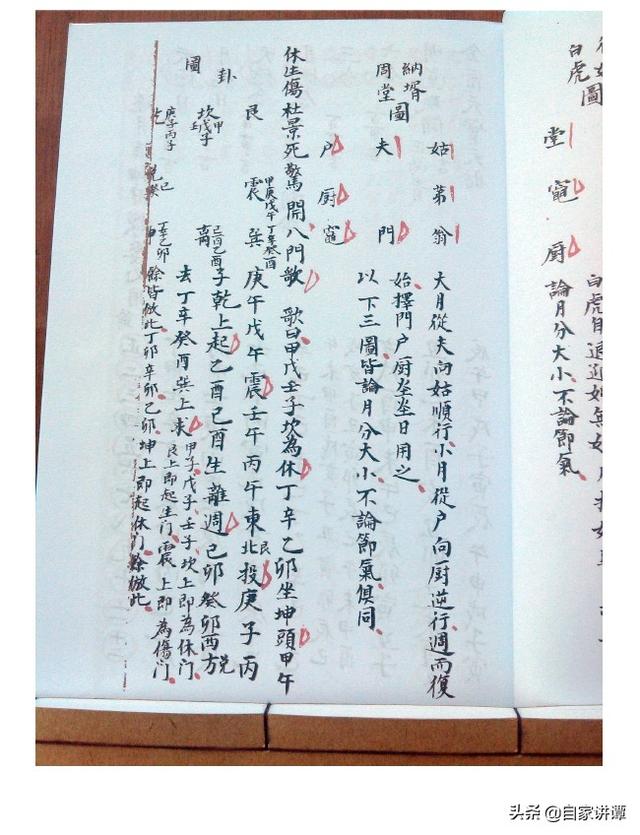 白虎圖
堂
竈
厨
論月分大小不論節氣
納壻
周堂圖
姑 第 翁
夫 門
户 厨 竈
大月從夫向姑順行小月從户向厨逆行週而復
始擇門户厨坐坐日用之
以下三圖皆論月分大小不論節氣俱同
休生傷杜景死驚開八門歌
歌曰甲戊壬子坎為休丁辛乙卯坐坤頭甲午
庚午戊午震壬午丙午東北投庚子丙
子乾上起乙酉己酉生離週己卯癸卯西方兑
去丁辛癸酉巽上求
甲子戊子壬子坎上即為休門
艮上即起生門震上即為傷門
餘皆倣此丁卯辛卯乙卯坤上即起休門餘倣此
卦圖
艮
震
甲庚戊午
巽
丁辛癸酉
坎
甲壬戊子
離
己酉乙酉
庚子丙子
坤
头条 @自家讲谭